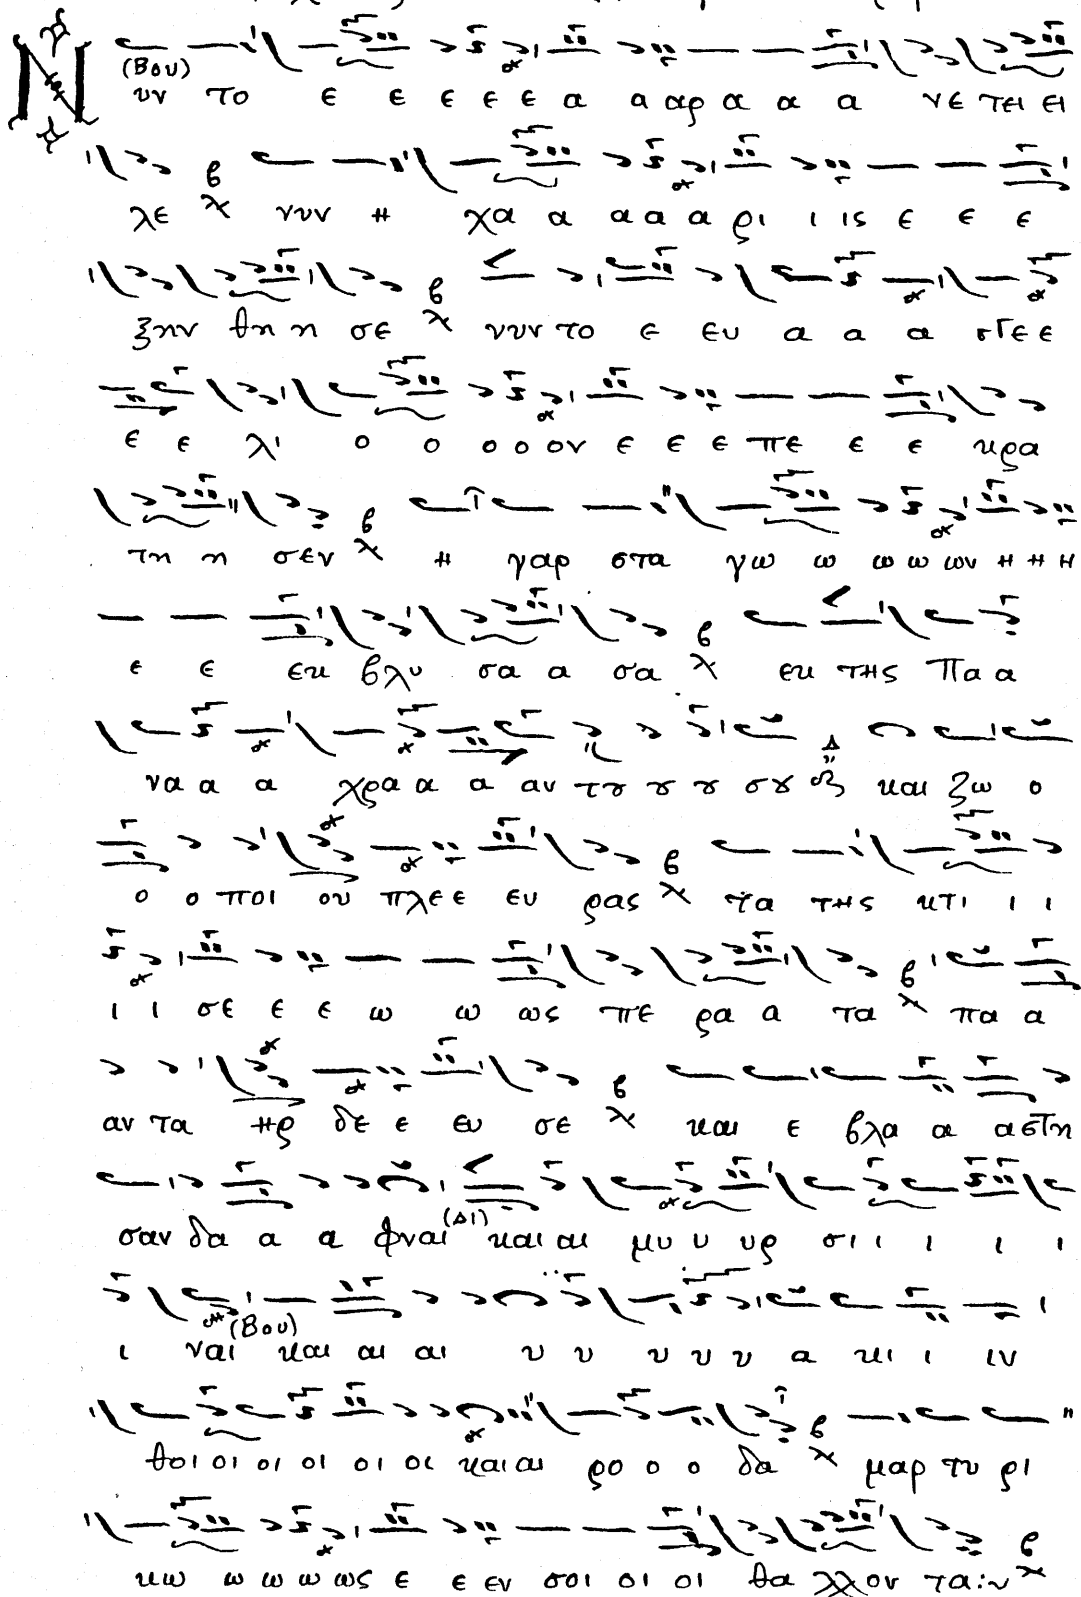 Νυν το ε ε ε ε ε α α αρ α α α νε τει ει
(Βου)
λε νυν η χα α α α α ρι ι ις ε ε ε
ξην θη η σε νυν το ε ευ α α α γγε ε
ε ε λι ο ο ο ο ον ε ε ε πε ε ε κρα
τη η σεν η γαρ στα γω ω ω ω ων η η η
ε ε εκ βλυ σα α σα εκ της Πα α
να α α χρα α α αν του ου ου σου και ζω ο
ο ο ποι ου πλε ε ευ ρας τα της κτι ι ι
ι ι σε ε ε ω ω ως πε ρα α τα πα α
αν τα ηρ δε ε ευ σε και ε βλα α αστη
σαν δα α α φναι και αι μυ υ υρ σι ι ι ι ι ι
(Δι)
ι ναι και αι αι υ υ υ υ υ α κι ι ιν
(Βου)
θοι οι οι οι οι οι οι και αι ρο ο ο δα μαρ τυ ρι
κω ω ω ω ως ε ε εν σοι οι οι θα λλον τα:ν